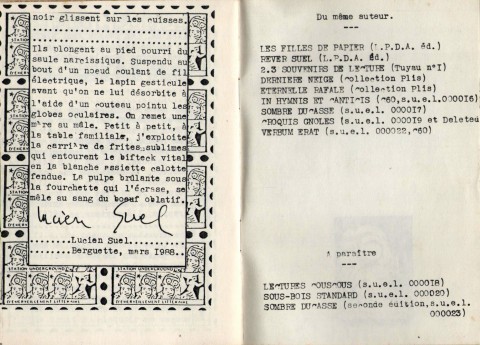 noir glissent sur les cuisses.
Ils plongent au pied pourri du
saule narcissique. Suspendu au
bout d'un noeud coulant de fil
électrique, le lapin gesticule
avant qu'on ne lui désorbite à
l'aide d'un couteau pointu les
globes oculaires. On remet une
mère au mâle. Petit à petit, à
la table familiale, j'exploite
la carrière de frites sublimes
qui entourent le bifteck vital
en la blanche assiette calotte
fendue. La pulpe brûlante sous
la fourchette qui l'écrase, se
mêle au sang du boeuf oblatif.
Lucien Suel
Lucien Suel.
Berguette, mars 1988.
STATION UNDERGROUND
D'EMERVEILLEMENT LITTERAIRE
Du même auteur.
---
LES FILLES DE PAPIER (L.P.D.A. éd.)
REVER SUEL (L.P.D.A. éd.)
2.3 SOUVENIRS DE LECTURE (Tuyau n°I)
DERNIERE NEIGE (collection Plis)
ETERNELLE RAFALE (collection Plis)
IN HYMNIS ET CANTICIS (c60,s.u.e.l.000016)
SOMBRE DUCASSE (s.u.e.l. 000017)
CROQUIS GNOLES (s.u.e.l. 000019 et Deleteu
VERBUM ERAT (s.u.e.l. 000022,c60)
A paraître
---
LECTURES COUSCOUS (s.u.e.l. 000018)
SOUS-BOIS STANDARD (s.u.e.l. 000020)
SOMBRE DUCASSE (seconde édition,s.u.e.l.
000023)